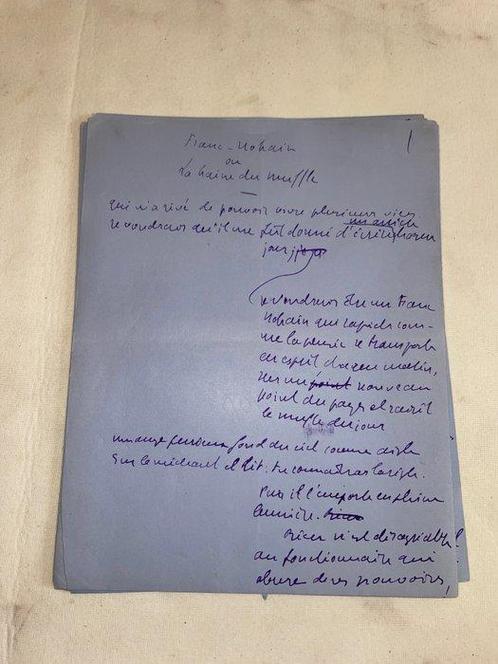 1
Franc-Nohain
ou
La haine du muffle
qui n'a rêvé de pouvoir vivre plusieurs vies
je voudrais qu'il me fût donné d'écrire chaque
un article
jour
je voudrais être un Franc
Nohain qui rapide com-
me la pensée se transporte
en esprit chaque matin,
sur un point nouveau
point du pays et saisit
le muffle du jour
un ange furieux fond du ciel comme
sur le méchant et dit: tu connaîtras la règle.
Puis il l'emporte en pleine
lumière. Rien
Rien n'est
au fonctionnaire qui
abuse de ses pouvoirs,